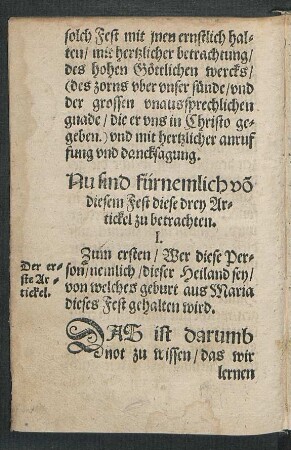 solch Fest mit jnen ernstlich hal-
ten/ mit hertzlicher betrachtung/
des hohen Göttlichen wercks/
(des zorns vber vnser sünde/ vnd
der grossen vnaussprechlichen
gnade/ die er vns in Christo ge-
geben.) vnd mit hertzlicher anruf
fung vnd dancksagung.
Nu sind fürnemlich võ
diesem Fest diese drey Ar-
tickel zu betrachten.
I.
Zum ersten/ Wer diese Per-
son/ nemlich/ dieser Heiland sey/
von welches geburt aus Maria
dieses Fest gehalten wird.
Der er-
ste Ar-
tickel.
DAS ist darumb
not zu wissen/ das wir
lernen